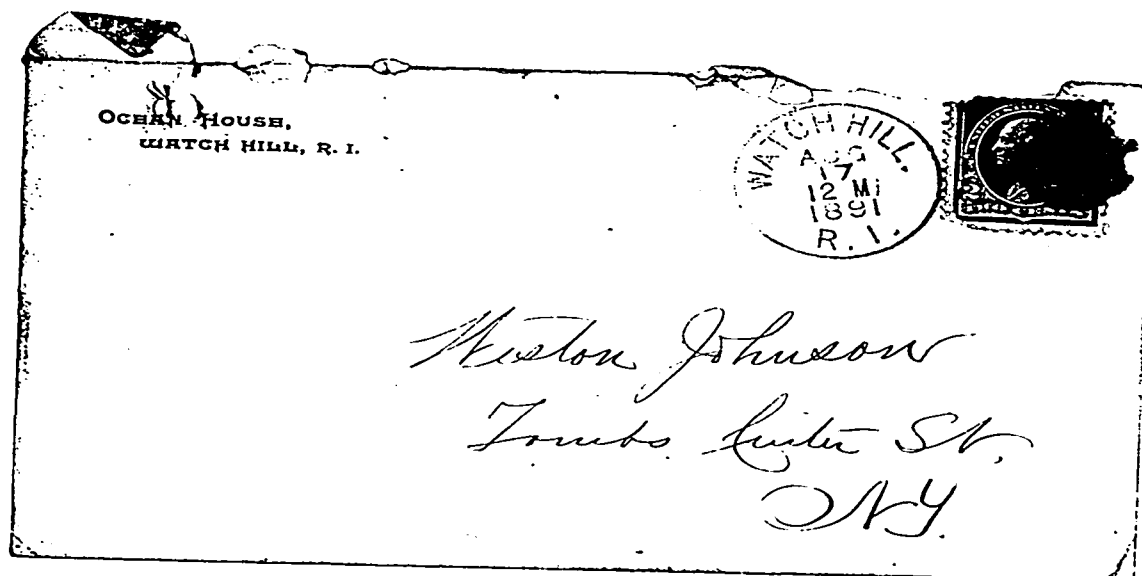 OCEAN HOUSE,
WATCH HILL, R. I.
WATCH HILL,
AUG
17
12 M
1891
R. I.
Weston Johnson
Tombs Center St.
NY.